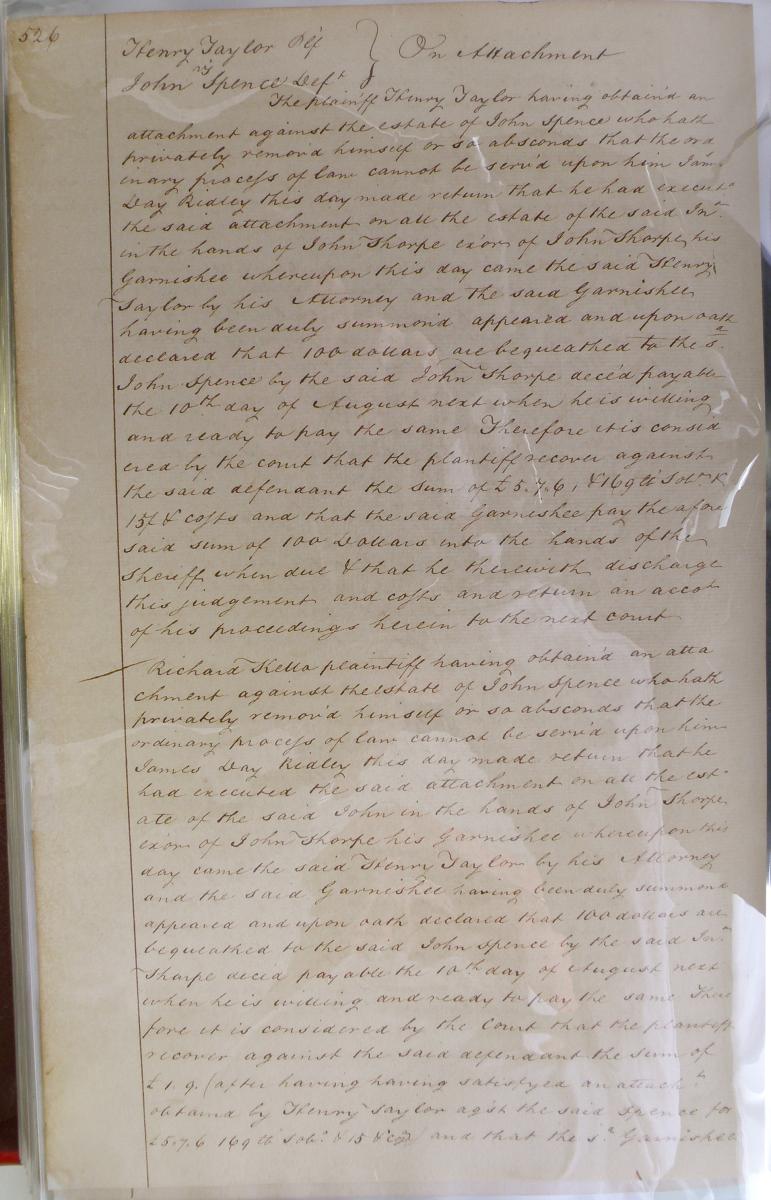 526
Henry Taylor Plf } On Attachment
vs
John Spence Deft
The plaintff Henry Taylor having obtain'd an
attachment against the estate of John Spence who hath
privately remov'd himself or so absconds that the ord
inary process of law cannot be serv'd upon him Jams
Day Ridley this day made return that he had execut
the said attachment on all the estate of the said Jno
in the hands of John Thorpe ex'or of John Thorpe his
Garnishee whereupon this day came the said Henry
Taylor by his Attorney and the said Garnishee
having been duly summon'd appeared and upon oath
declared that 100 dollars are bequeathed to the sd
John Spence by the said John Thorpe dece'd payable
the 10th day of August next when he is willing
and ready to pay the same Therefore it is consid
ered by the court that the plantiff recover against
the said defendant the sum of £5.7.6, & 169 lb Tobo
15/ & costs and that the said Garnishee pay the afore
said sum of 100 Dollars into the hands of the
Sheriff when due & that he therewith discharge
this judgement and costs and return an accot
of his proceedings herein to the next court
Richard Kello plaintiff having obtain'd an atta
chment against the estate of John Spence who hath
privately remov'd himself or so absconds that the
ordinary process of law cannot be serv'd upon him
James Day Ridley this day made return that he
had executed the said attachment on all the est
ate of the said John in the hands of John Thorpe
ex'or of John Thorpe his Garnishee whereupon this
day came the said Henry Taylor by his Attorney
and the said Garnishee having been duly summond
appeared and upon oath declared that 100 dollars are
bequeathed to the said John Spence by the said Jno
Tharpe dece'd payable the 10th day of August next
when he is willing and ready to pay the same There
fore it is considered by the Court that the plantiff
recover against the said defendant the sum of
£1.9. (after having having satisfyed an attacht
obtaind by Henry Taylor agst the said Spence for
£5.7.6 169 lb Tobo & 15 & and that the sd Garnishee